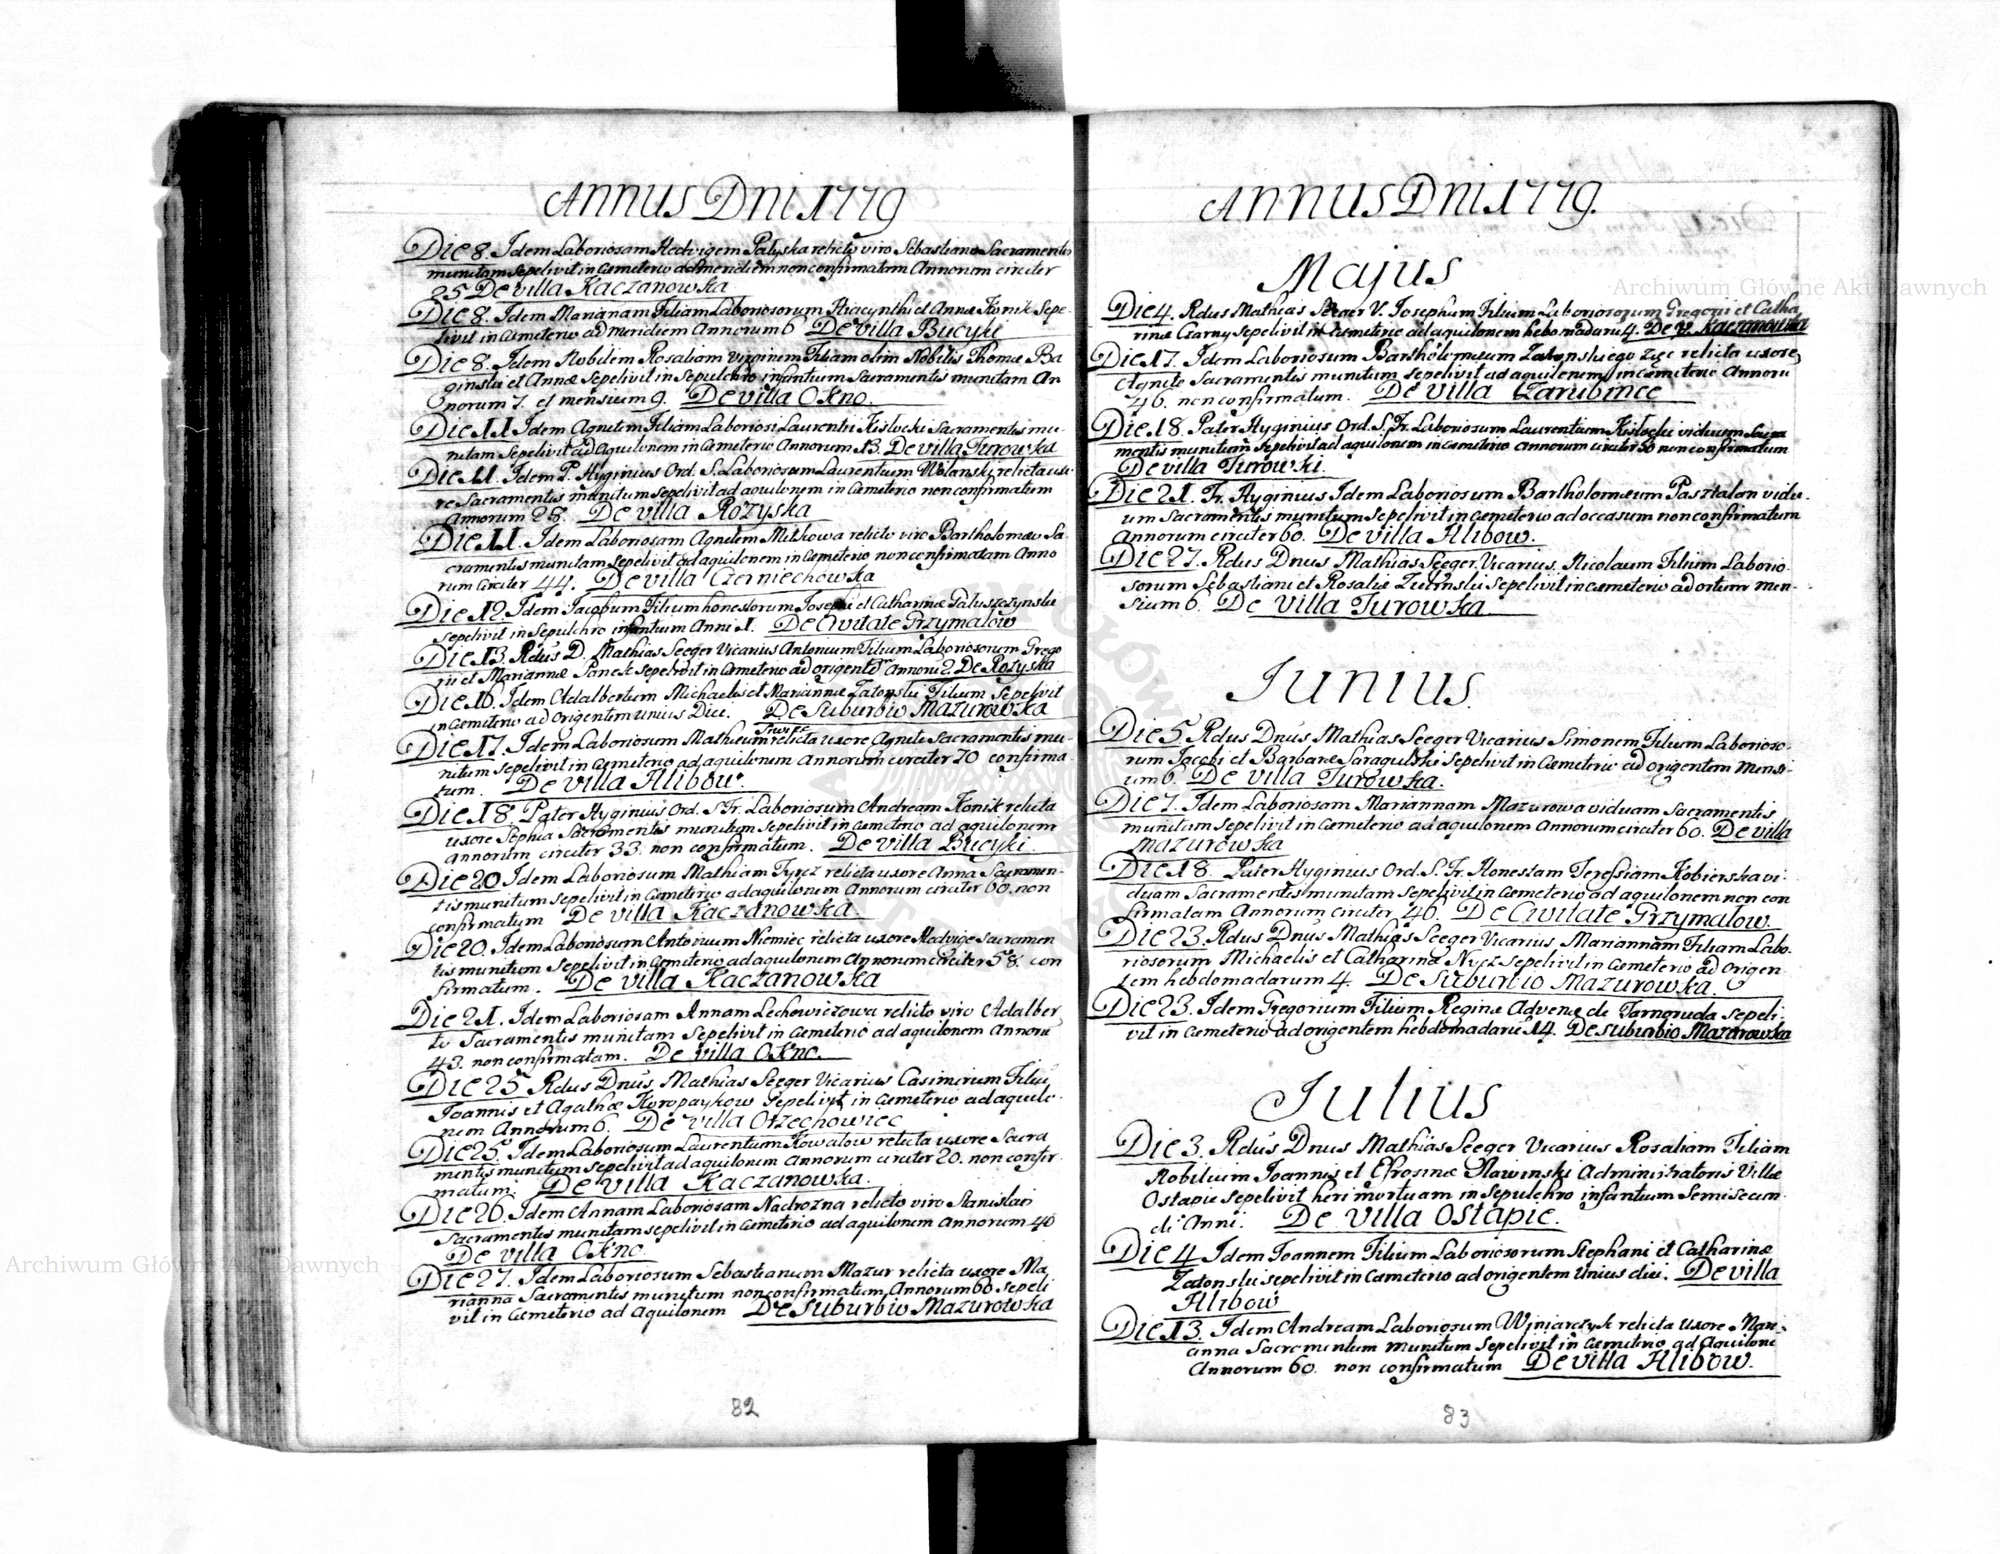 Annus Dni 1779
Die 8. Idem Laboriosam Hedvigem Patyska relicto viro Sebastiano Sacramentis
munitam sepelivit in Cæmeterio ad meridiem non confirmatam Annorum circiter
25 De villa Kaczanowka
Die 8. Idem Mariannam Filiam Laboriosorum Hiacynthi et Annæ Konik Sepe-
livit in Cæmeterio ad meridiem Annorum 6 De villa Bucyki
Die 8. Idem Nobilem Rosaliam virginem Filiam olim Nobilis Thomæ Ba
ginski et Annæ Sepelivit in Sepulchro infantium Sacramentis munitam An
norum 7. et mensium 9. De villa Okno.
Die 11 Idem Agnetem Filiam Laboriosi Laurentii Kislocki Sacramentis mu-
nitam Sepelivit ad Aquilonem in Cæmeterio Annorum 13. De villa Turowka
Die 11. Idem P. Hyginius Ord. S. Laboriosum Laurentium Wolansky relicta uxo
re Sacramentis munitum sepelivit ad aquilonem in Cæmeterio non confirmatum
Annorum 28. De villa Rozyska
Die 11. Idem Laboriosam Agnetem Mitkowa relicto viro Bartholomæo Sa-
cramentis munitam sepelivit ad aquilonem in Cæmeterio non confirmatam Anno
rum Circiter 44. De villa Czerniechowka
Die 12. Idem Jacobum Filium honestorum Josephi et Catharinæ Paluszczynski
sepelivit in Sepulchro infantium Anni 1. De Civitate Grzymalow
Die 13. Rdus D. Mathias Seeger Vicarius Antonium Filium Laboriosorum Grego
rii et Mariannæ sepelivit in Cæmeterio ad origentem Annorū 2. De Rozyska
Die 16. Idem Adalbertum Michaelis et Mariannæ Zatonski Filium Sepelivit
in Cæmeterio ad Origentem unius Diei. De Suburbio Mazurowka
Die 17. Idem Laboriosum Mathæum relicta uxore Agnete Sacramentis mu-
nitum sepelivit in Cæmeterio ad aquilonem Annorum circiter 70 confirma-
tum. De villa Hlibow.
Die 18. Pater Hyginius Ord. S. Fr. Laboriosum Andream Konik relicta
uxore Sophia Sacramentis munitum sepelivit in Cæmeterio ad aquilonem
annorum circiter 33. non confirmatum. De villa Bucyki.
Die 20 Idem Laboriosum Mathiam relicta uxore Anna Sacramen-
tis munitum sepelivit in Cæmeterio ad aquilonem Annorum circiter 60. non
confirmatum De villa Kaczanowka.
Die 20. Idem Laboriosum Antonium Niemiec relicta uxore Hedvige Sacramen
tis munitum sepelivit in Cæmeterio ad aquilonem Annorum circiter 58. con
firmatum. De villa Kaczanowka
Die 21. Idem Laboriosam Annam Lechowiczowa relicto viro Adalber
to Sacramentis munitam Sepelivit in Cæmeterio ad aquilonem Annorū
43. non confirmatam. De villa Okno.
Die 25 Rdus Dnus Mathias Seeger Vicarius Casimirum Filiū
Joannis et Agathæ Koropaykow Sepelivit in Cæmeterio ad aquilo-
nem Annorum 6. De villa Orzechowiec
Die 25. Idem Laboriosum Laurentium Kowalow relicta uxore Sacra
mentis munitum sepelivit ad aquilonem Annorum circiter 20. non confir-
matum. De villa Kaczanowka.
Die 26. Idem Annam Laboriosam Nadrozna relicto viro Stanislao
Sacramentis munitam sepelivit in Cæmeterio ad aquilonem Annorum 40
De villa Okno.
Die 27. Idem Laboriosum Sebastianum Mazur relicta uxore Ma
rianna Sacramentis munitum non confirmatum Annorum 60 Sepeli
vit in Cæmeterio ad Aquilonem De Suburbio Mazurowka
82
Annus Dni 1779.
Majus
Die 4. Rdus Mathias Seeger V. Josephum Filium Laboriosorum Gregorii et Catha
rinæ Czarny Sepelivit in Cæmeterio ad aquilonem hebomadarū 4. De V. Kaczanowka
Die 17. Idem Laboriosum Bartholomæum Zatonskiego zięc relicta uxore
Agnete Sacramentis munitum sepelivit ad aquilonem in Cæmeterio Annorū
46. non confirmatum. De villa Czarubince
Die 18. Pater Hyginius Ord. S. Fr. Laboriosum Laurentium Kislocki viduum Sacra
mentis munitum sepelivit ad aquilonem in Cæmeterio Annorum circiter 50 non confirmatum
De villa Turowki.
Die 21. Fr. Hyginius Idem Laboriosum Bartholomæum Pasztalon vidu-
um Sacramentis munitum sepelivit in Cæmeterio ad occasum non confirmatum
Annorum circiter 60. De villa Hlibow.
Die 27. Rdus Dnus Mathias Seeger Vicarius. Nicolaum Filium Laborio-
sorum Sebastiani et Rosaliæ sepelivit in Cæmeterio ad ortum men-
sium 6. De villa Turowka
Junius.
Die 5 Rdus Dnus Mathias Seeger Vicarius Simonem Filium Laborioso-
rum Jacobi et Barbaræ Saragulski sepelivit in Cæmeterio ad origentem mensi-
um 6. De villa Turowka.
Die 7. Idem Laboriosam Mariannam Mazurowa viduam Sacramentis
munitam sepelivit in Cæmeterio ad aquilonem Annorum circiter 60. De villa
Mazurowka
Die 18. Pater Hyginius Ord. S. Fr. Honestam Teressiam Kobierska vi-
duam Sacramentis munitam sepelivit in Cæmeterio ad aquilonem non con
firmatam Annorum circiter 40. De Civitate Grzymalow.
Die 23. Rdus Dnus Mathias Seeger Vicarius Mariannam Filiam Labo-
riosorum Michaelis et Catharinæ Nycz sepelivit in Cæmeterio ad origen-
tem hebdomadarum 4. De Suburbio Mazurowka.
Die 23. Idem Gregorium Filium Reginæ Advenæ de Tarnoruda sepeli-
vit in Cæmeterio ad origentem hebdomadarū 14. De suburbio Mazurowka
Julius
Die 3. Rdus Dnus Mathias Seeger Vicarius Rosaliam Filiam
Nobilium Joannis et Efrosinæ Slawinski Administratoris Villæ
Ostapie sepelivit heri mortuam in sepulchro infantium Semisecun-
di Anni. De villa Ostapie.
Die 4 Idem Joannem Filium Laboriosorum Stephani et Catharinæ
Zatonski sepelivit in Cæmeterio ad origentem Unius diei. De villa
Hlibow
Die 13. Idem Andream Laboriosum Winiarczyk relicta uxore Mari-
anna Sacramentum munitum Sepelivit in Cæmeterio ad Aquilonē
Annorum 60. non confirmatum De villa Hlibow.
83
Archiwum Główne Akt Dawnych
Archiwum Główne Akt Dawnych